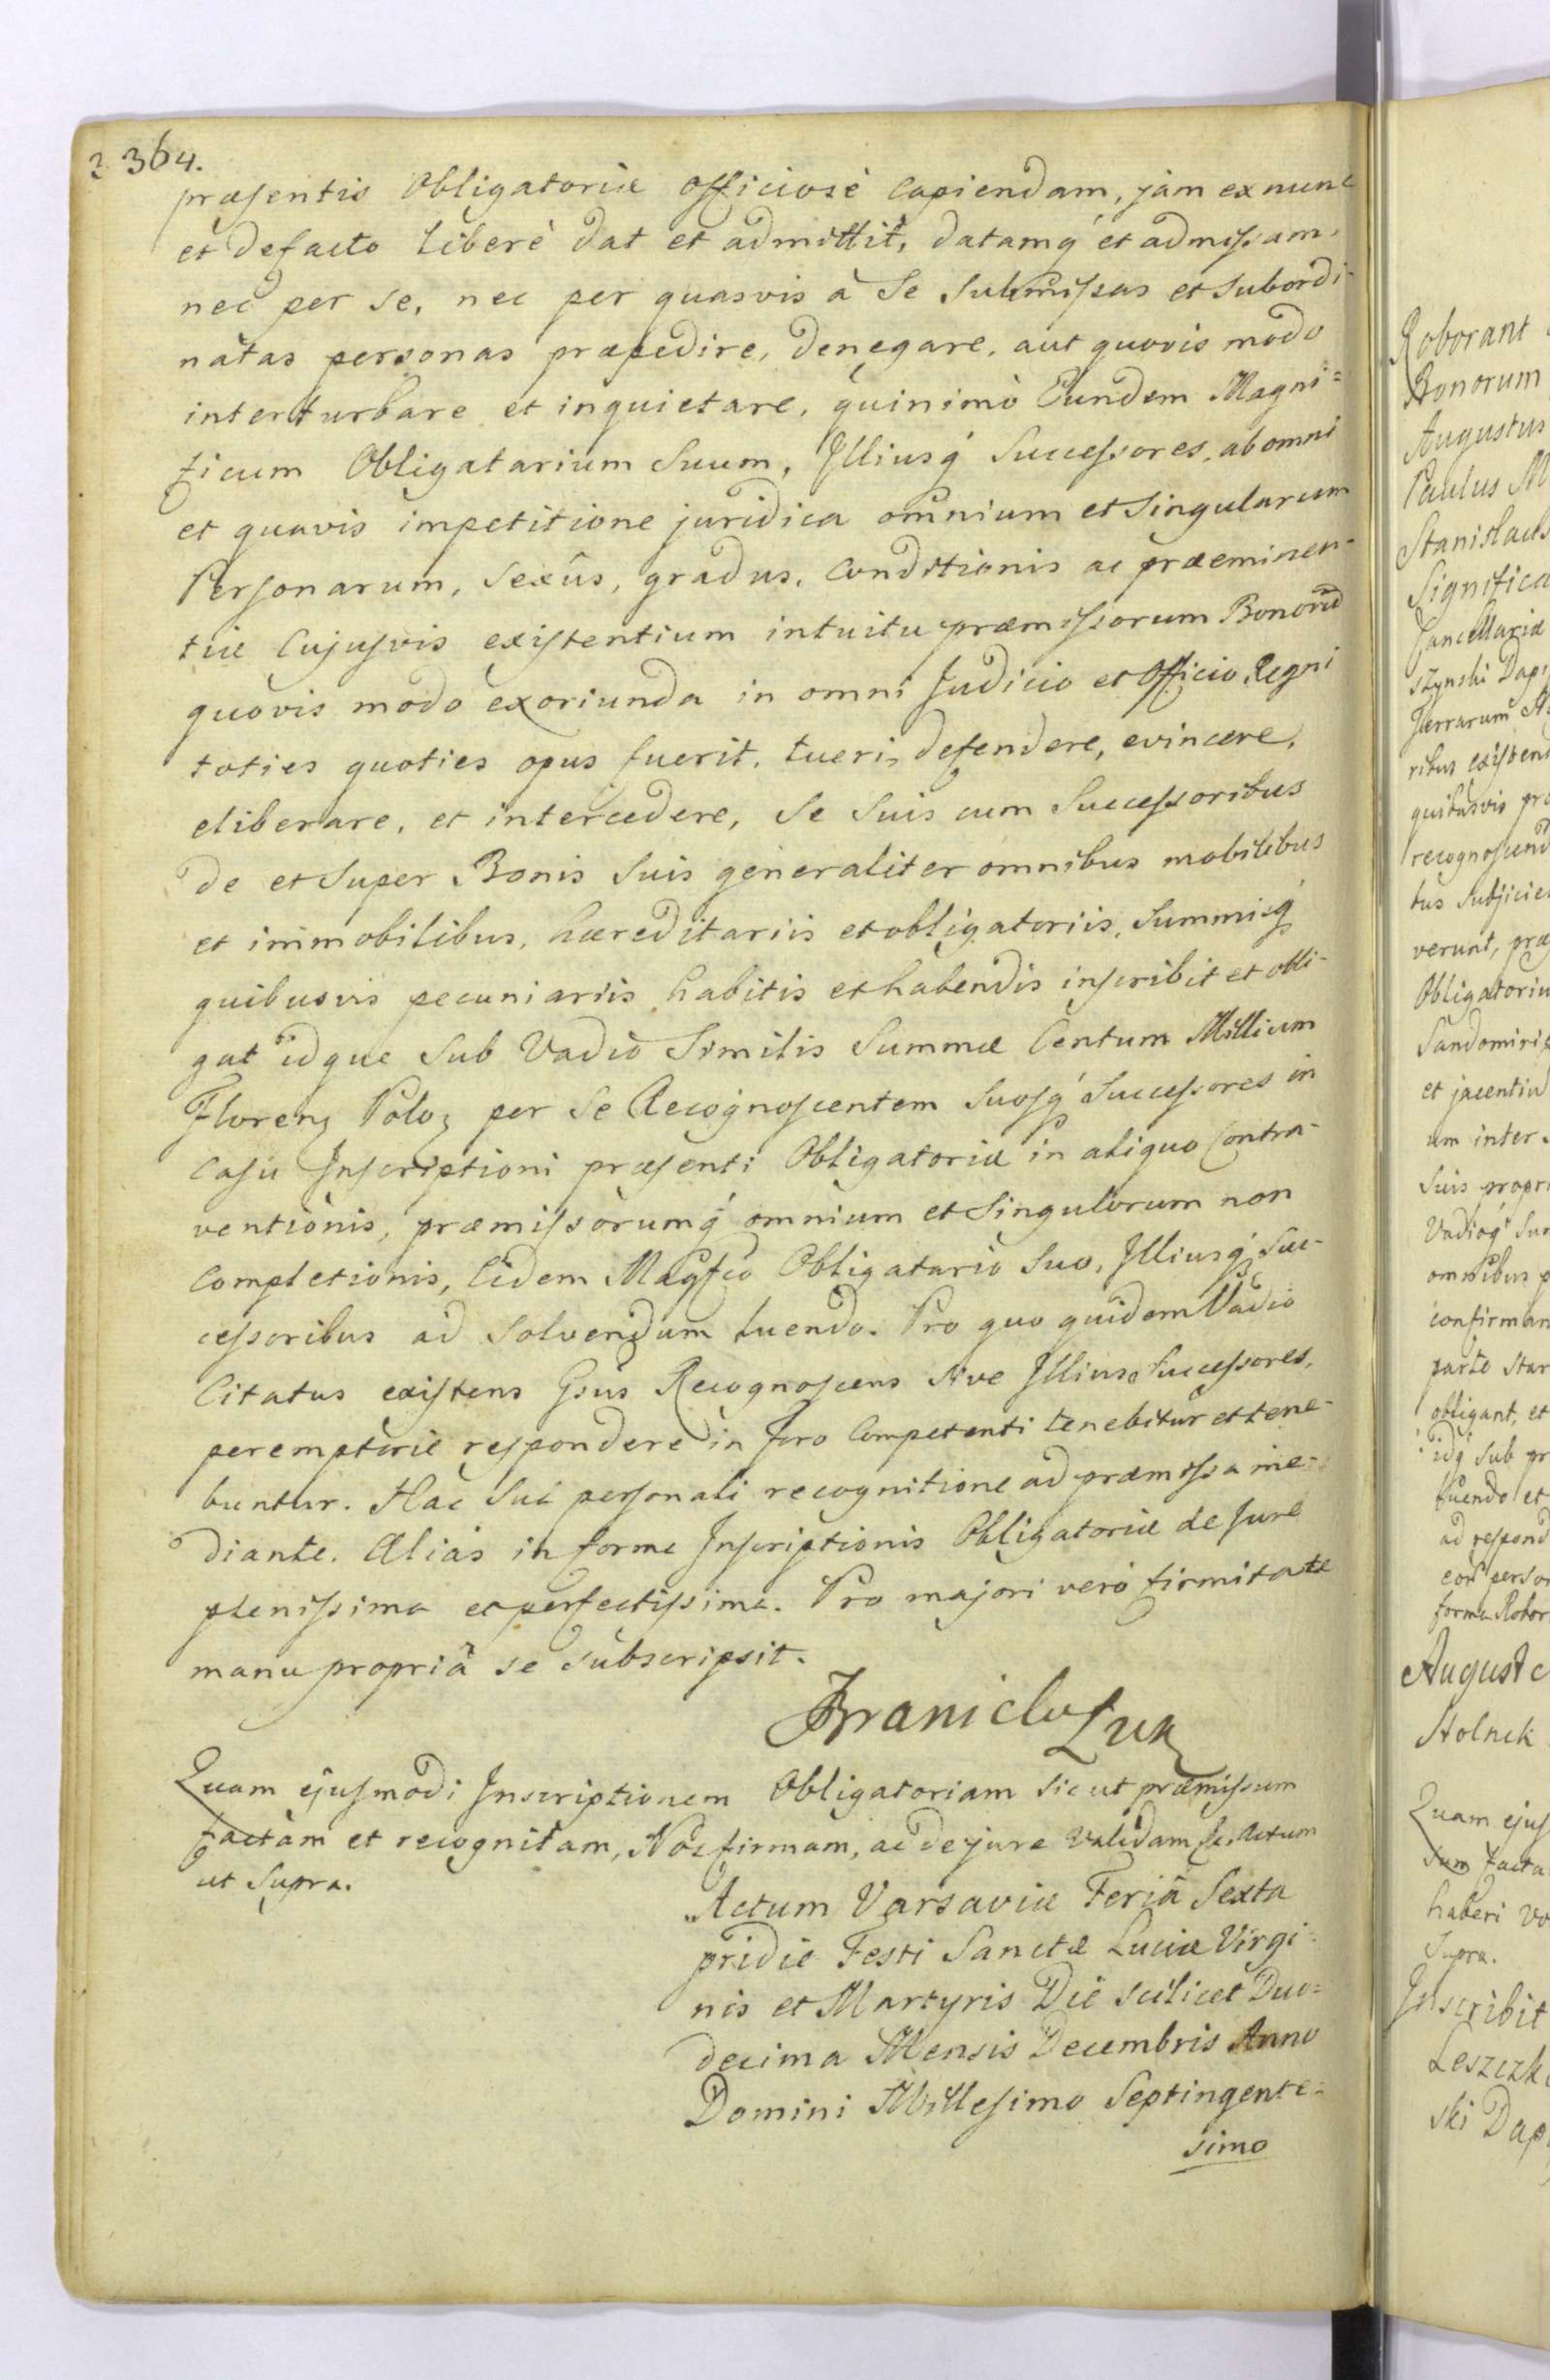 2364.
præsentis Obligatoriæ officiosè capiendam, jàm ex nunc
et defacto liberè dat et admittit, datamq́ et admissam,
nec per se, nec per quasvis à Se Submissas et Subordi-
natas personas præpedire, denegare, aut quovis modo
interturbare et inquietare, quinimò Eundem Magni=
ficum Obligatarium Suum, Illiusq́ Successores, ab omni
et quavis impetitione juridica omnium et Singularum
Personarum, Sexûs, gradus, Conditionis ac præeminen-
tiæ Cujusvis existentium intuitu præmissorum Bonorũ
quovis modo exoriunda in omni Judicio et Officio Regni
toties quoties opus fuerit, tueri, defendere, evincere,
eliberare, et intercedere, Se Suis cum Successoribus
de et Super Bonis Suis generaliter omnibus mobilibus
et immobilibus, hæreditariis et obligatoriis, Summisq́
quibusvis pecuniariis habitis et habendis inscribit et obli-
gat idque Sub Vadio Similis Summæ Centum Millium
Florenz Poloz per Se Recognoscentem Suosq́ Successores in
Casu Inscriptioni præsenti Obligatoriæ in aliquo Contra-
ventionis, præmissorumq́ omnium et Singulorum non
Completionis, Eidem Magfco Obligatario Suo, Illiusq́ Suc-
cessoribus ad Solvendum luendo. Pro quo quidem Vadio
Citatus existens Gsus Recognoscens Sive Illius Successores,
peremptorie respondere in Foro Competenti tenebitur et tene-
buntur. Hac Sui personali recognitione ad præmissa me-
diante. Aliàs in forma Inscriptionis Obligatoriæ de Jure
plenissima et perfectissima. Pro majori verò firmitate
manu propriâ se subscripsit.
Quam ejusmodi Inscriptionem Obligatoriam Sic ut præmissum
factam et recognitam, Nos firmam, ac de jure Validam &c. Actum
ut Supra.
Actum Varsaviæ Feriâ Sexta
pridie Festi Sanctæ Luciæ Virgi=
nis et Martyris Die scilicet Duo=
decima Mensis Decembris Anno
Domini Millesimo Septingente=
simo
Roborant
Bonorum
Augustus
Paulus M
Stanislaus
Significa
Cancellariæ
szynski Dapi
Terrarum
ribus existen
quibusvis pro
recognoscend
tus Subjicie
verunt, præ
Obligatoriu
Sandomiri
et jacentiu
um inter
Suis propri
Vadioq́ Sum
omnibus p
confirman
parte Star
obligant, et
idq́ Sub pr
luendo et
ad respond
eoř perso
forma Robor
August
Stolnik
Quam ejus
Sum facta
haberi vo
Supra.
Inscribit
Leszczk
ski Dap